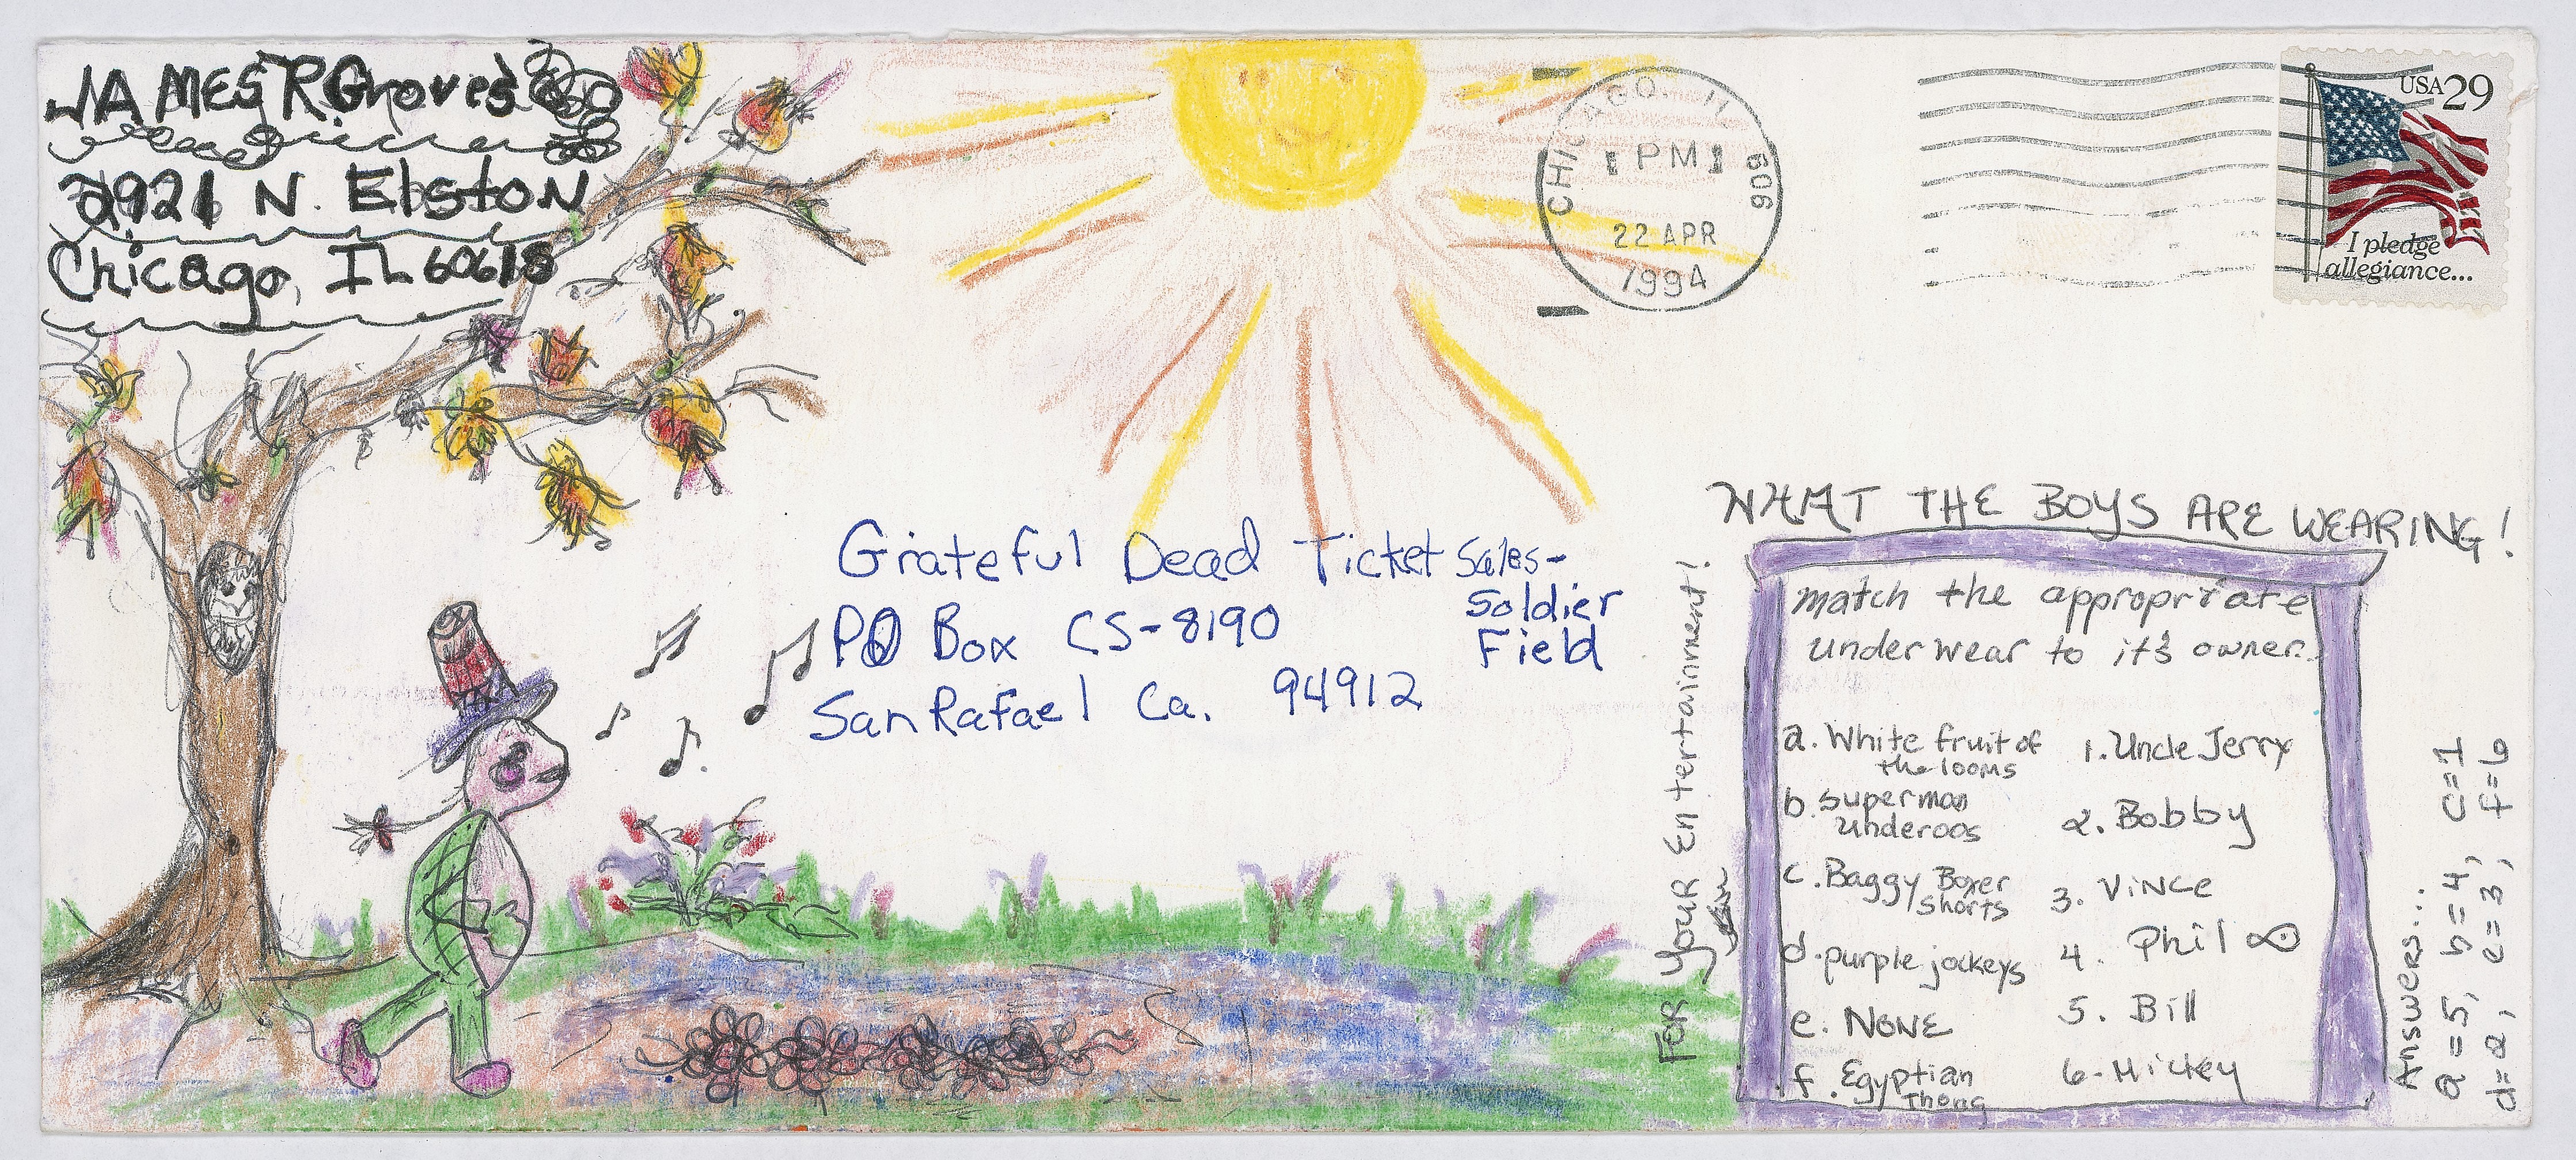 JAMES R Groves
2921 N. Elston
Chicago, IL 60618
CHICAGO, IL
PM
22 APR
1994
606
USA 29
I pledge
allegiance...
Grateful Dead Ticket Sales-
Soldier
Field
PO Box CS-8190
San Rafael Ca. 94912
FOR YOUR Entertainment!
WHAT THE BOYS ARE WEARING!
match the appropriate
underwear to it's owner.
a. White fruit of
the looms
b. superman
underoos
c. Baggy Boxer
shorts
d. purple jockeys
e. NONE
f. Egyptian
Thong
1. Uncle Jerry
2. Bobby
3. Vince
4. Phil
5. Bill
6- Mickey
Answers...
a=5, b=4, c=1
d=2, e=3, f=6